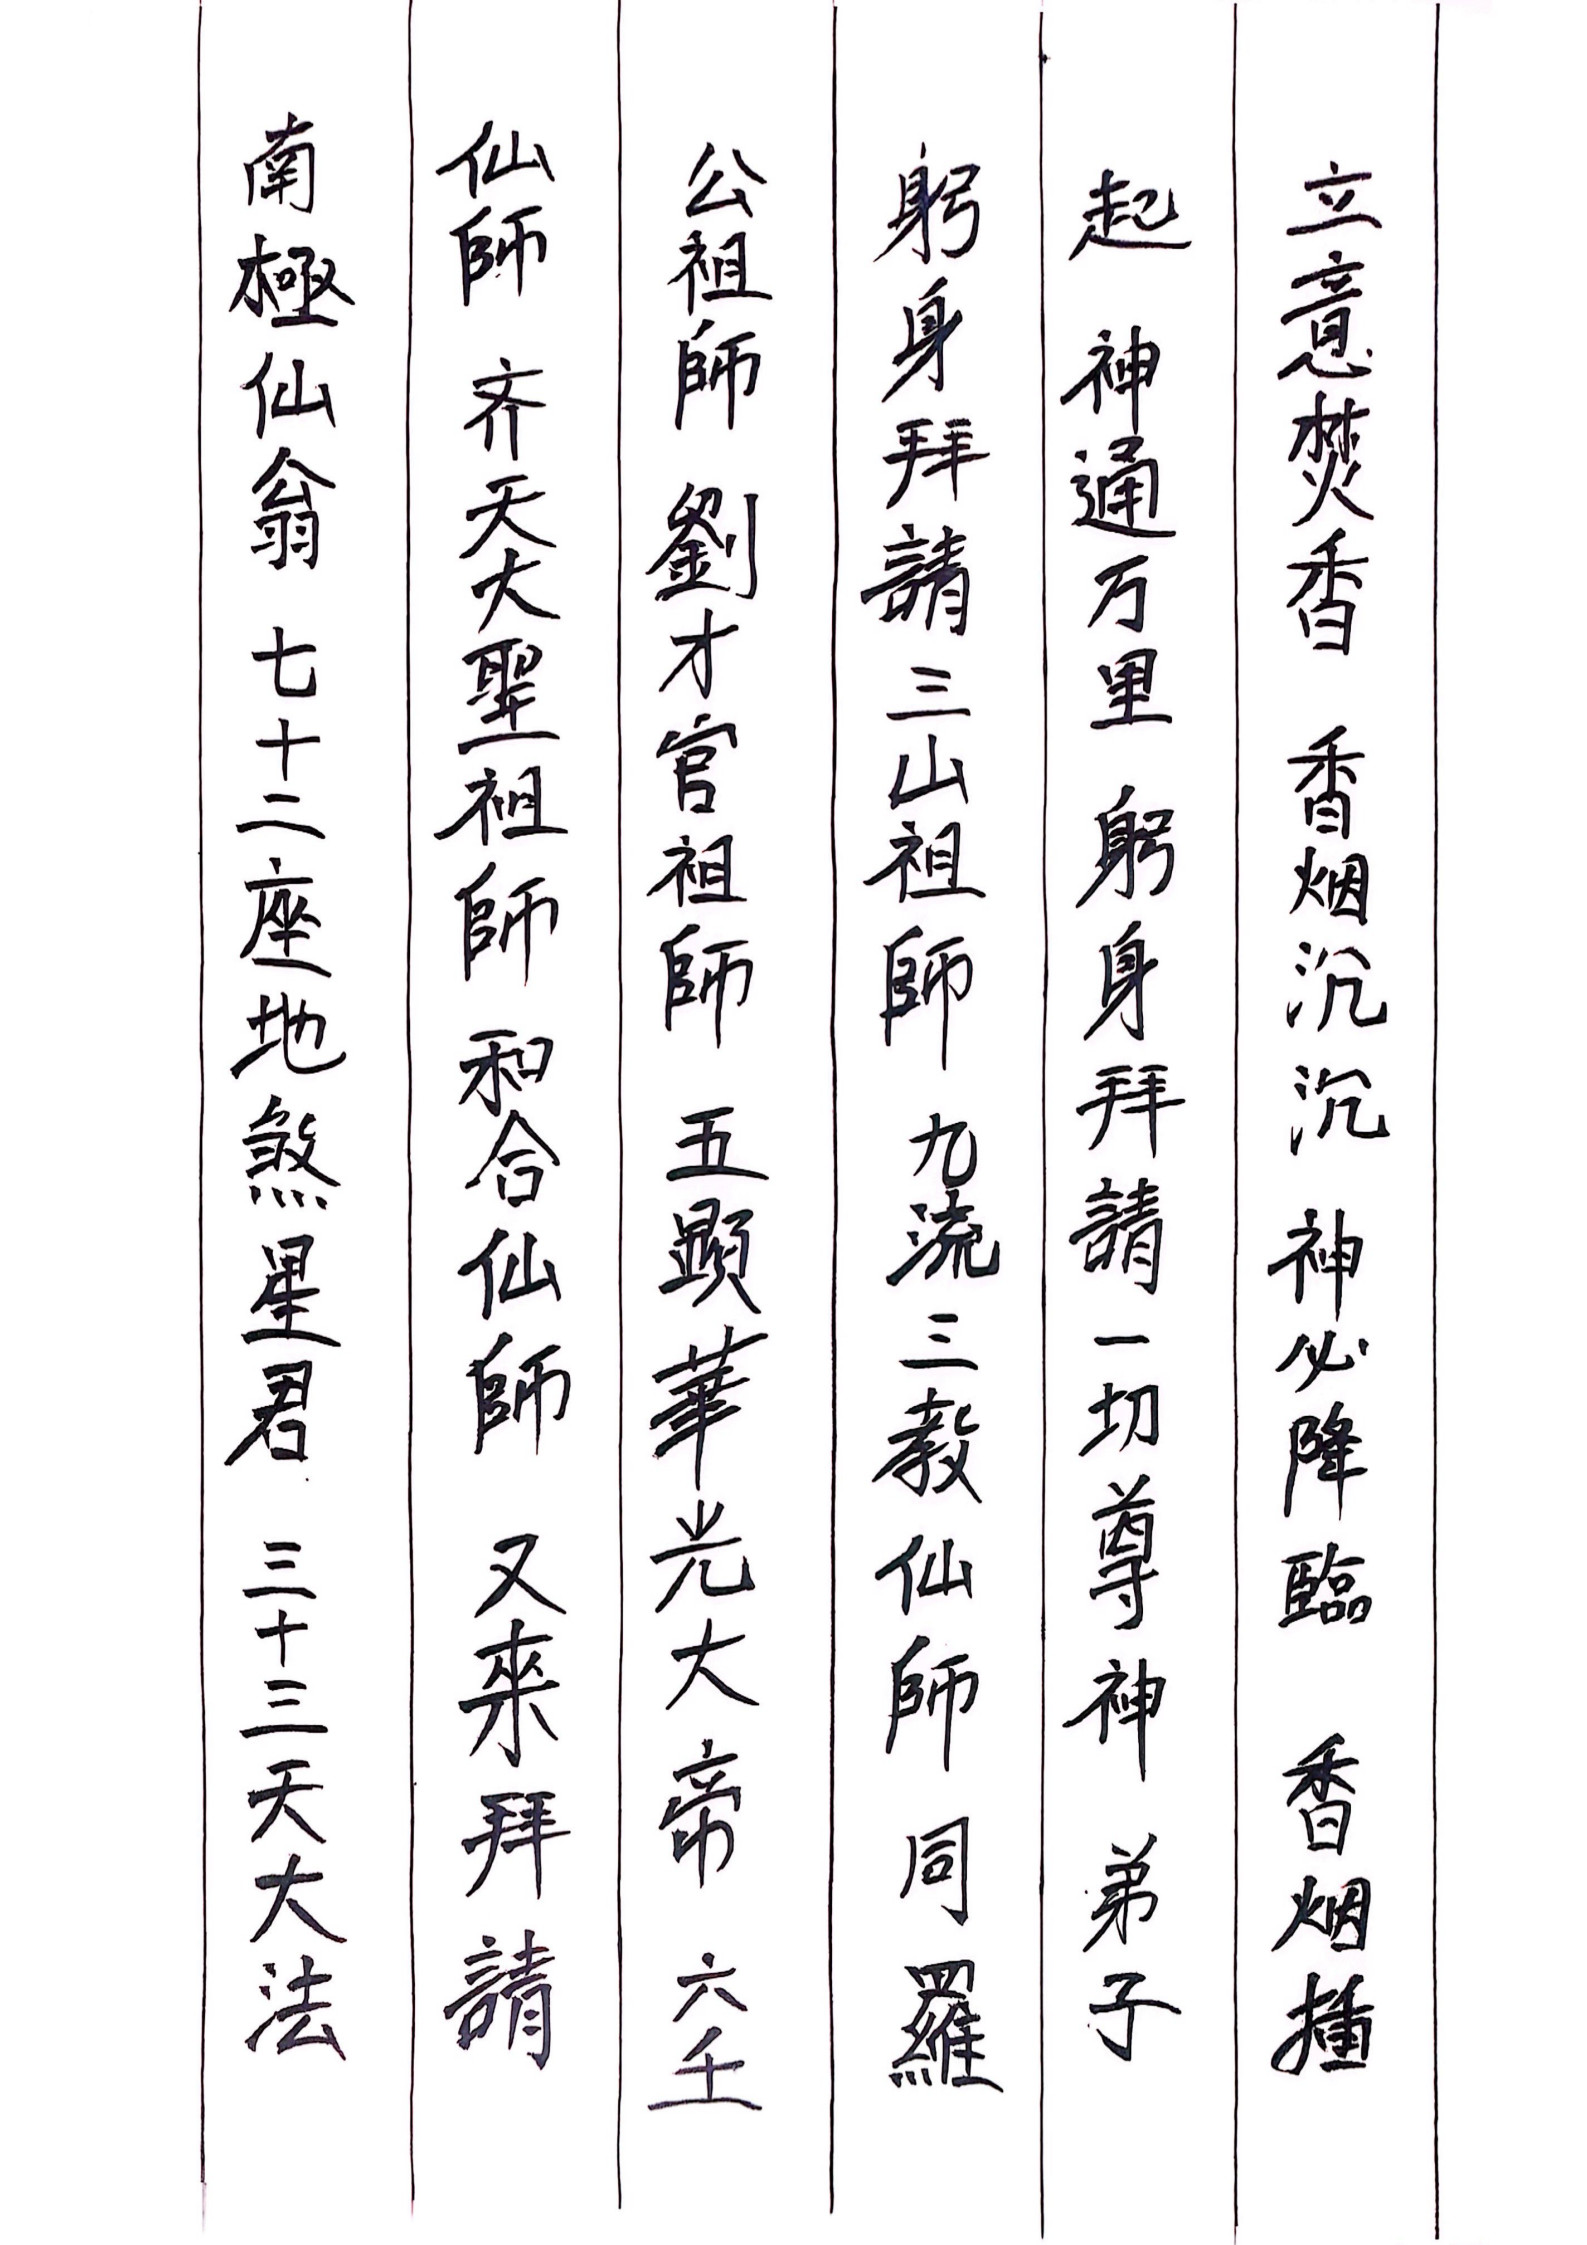 立意焚香 香烟沉沉 神必降臨 香烟捶
起 神通万里 躬身拜請一切尊神 弟子
躬身拜請三山祖師 九流三教仙師 同羅
公祖師 劉才官祖師 五顯華光大帝 六壬
仙師 齐天大聖祖師 和合仙師 又來拜請
南極仙翁 七十二座地煞星君 三十三天大法